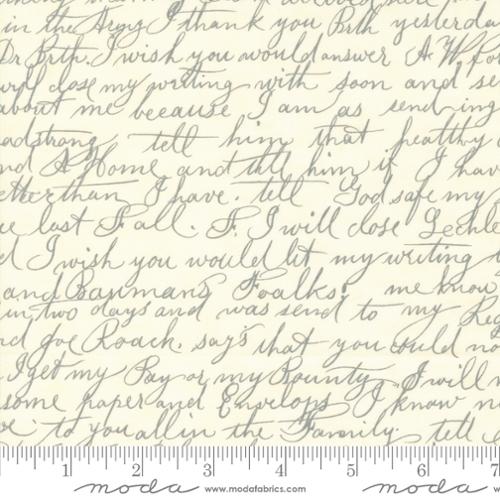 in the Army I thank you Brth yesterda
Dr Brth. I wish you would answer A.W. Fo
will close my writing with soon and se
about me because I am as send-ing
adstrong tell him that healthy
nd A Home and till him if I have
etter than I have. tell God safe my
e last Fall. F. I will close Lechle
d I wish you would let my writing
and Baumans Foalks, me know
in, two days and was send to my Reg
nd Joe Roach. says that you could no
I get my Pay or my Bounty I will
some paper and Envelops I know n
to you all in the Family. tell
1 2 3 4 5 6 7
moda www.modafabrics.com moda